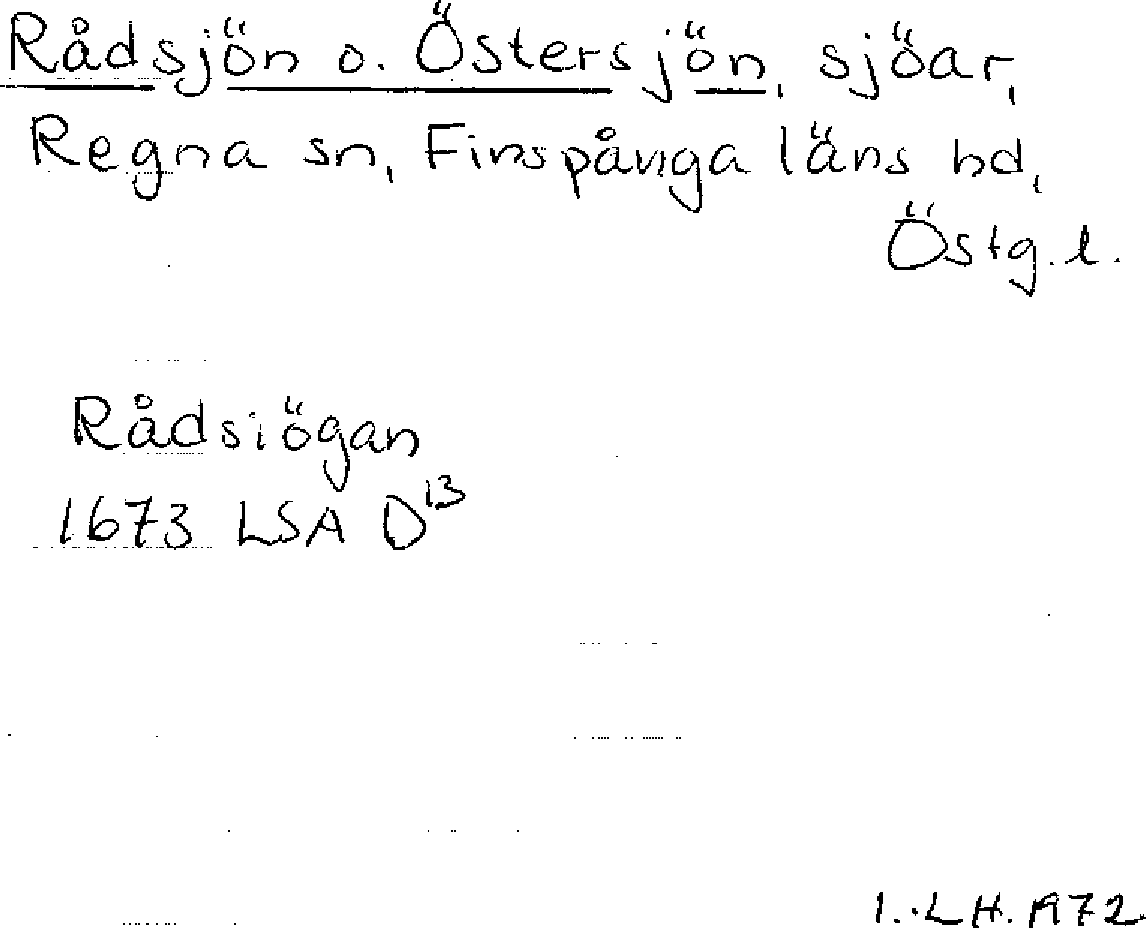 Rådsjön o. Östersjön, sjöar,
Regna sn, Finspånga läns hd,
Östg. l.
Rådsiögan
1673 LSA D13
I. LH. 1972